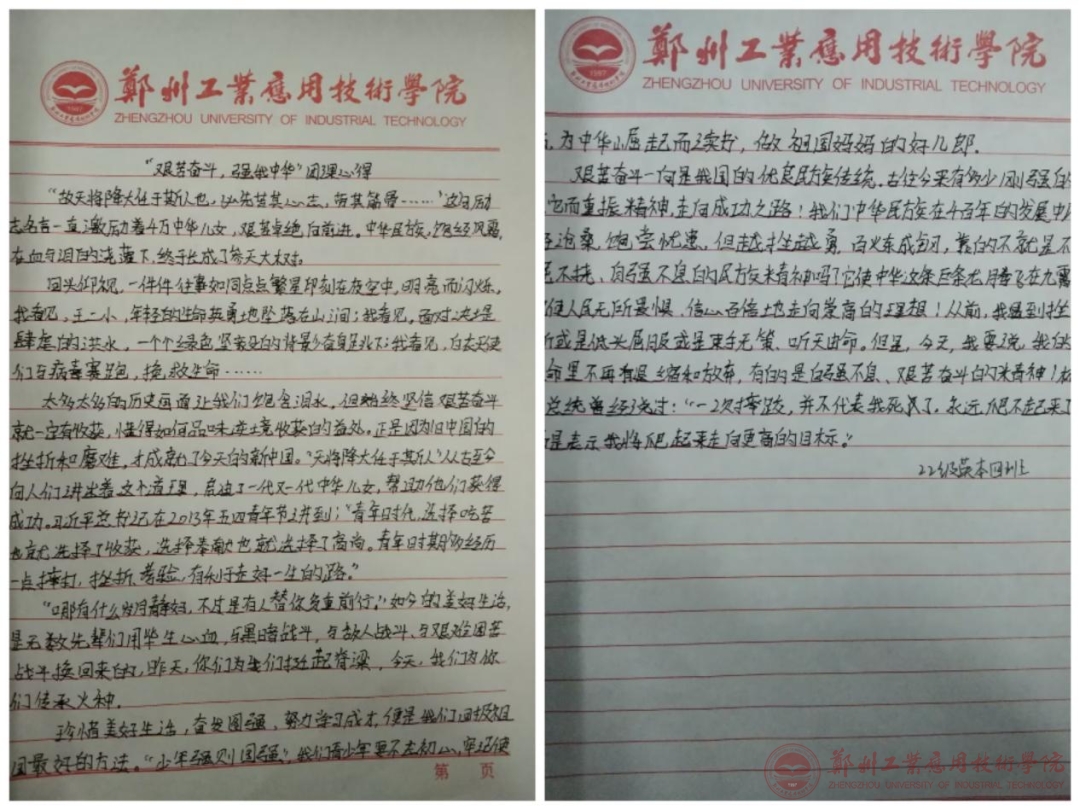 鄭州工業應用技術學院
ZHENGZHOU UNIVERSITY OF INDUSTRIAL TECHNOLOGY
"艰苦奋斗,强我中华"团课心得
"故天将降大任于斯人也,必先苦其心志,劳其筋骨……"这句励
志名言一直激励着4万中华儿女,艰苦卓绝向前进。中华民族,饱经风霜,
在血与泪的浇灌下,终于长成了参天大树。
回头仰视,一件件往事如同点点繁星印刻在夜空中,明亮而闪烁。
我看见,王二小,年轻的生命英勇地坠落在山涧;我看见,面对决堤
肆虐的洪水,一个个绿色坚毅的背影奋身跳下;我看见,白衣天使
们与病毒赛跑,挽救生命……
太多太多的历史画面让我们饱含泪水,但始终坚信艰苦奋斗
就一定有收获,懂得如何品味逆境收获的益处。正是因为旧中国的
挫折和磨难,才成就了今天的新中国。"天将降大任于斯人"从古至今
向人们讲出着这个道理,启迪了一代又一代中华儿女,帮助他们获得
成功。习近平总书记在2013年五四青年节讲到:"青年时代,选择吃苦
也就选择了收获,选择奉献也就选择了高尚。青年时期多经历
一点摔打、挫折、考验,有利于走好一生的路。"
"哪有什么岁月静好,不过是有人替你负重前行。"如今的美好生活,
是无数先辈们用毕生心血,与黑暗战斗,与敌人战斗、与艰难困苦
战斗换回来的,昨天,你们为我们挺起脊梁,今天,我们为你
们传承火种。
珍惜美好生活,奋发图强,努力学习成才,便是我们回报祖
国最好的方法。"少年强则国强",我们青少年要不忘初心,牢记使
第 页
鄭州工業應用技術學院
ZHENGZHOU UNIVERSITY OF INDUSTRIAL TECHNOLOGY
为中华崛起而读书,做祖国妈妈的好儿郎。
艰苦奋斗一向是我国的优良民族传统。古往今来有多少刚强的
它而重振精神,走向成功之路!我们中华民族在4百年的发展中
沧桑,饱尝忧患,但越挫越勇,百炼成钢,靠的不就是不
不挠,自强不息的民族精神吗?它使中华这条巨龙腾飞在九霄
使人民无所畏惧、信心百倍地走向崇高的理想!从前,我遇到挫
折或是低头屈服或是束手无策、听天由命。但是,今天,我要说,我的
命里不再有退缩和放弃,有的是自强不息、艰苦奋斗的精神!林
总统曾经说过:"一次摔跤,并不代表我死民了,永远爬不起来了
是表示我将爬起来走向更高的目标。"
22级英本四班
鄭州工業應用技術學院
ZHENGZHOU UNIVERSITY OF INDUSTRIAL TECHNOLOGY